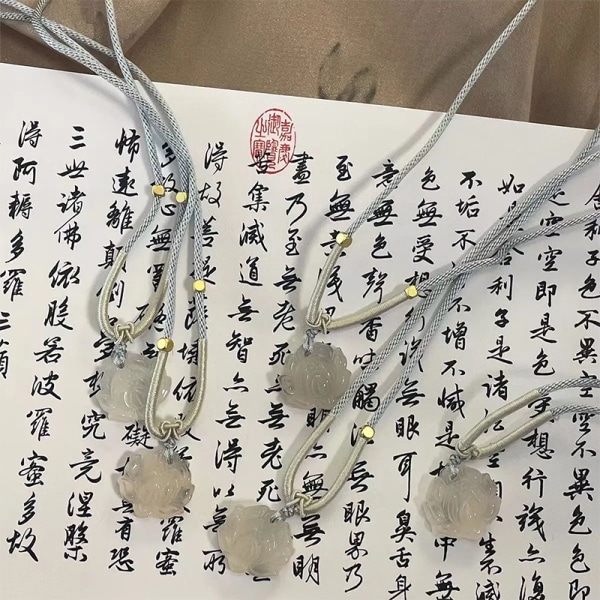 舍利子色不異空空不異色色即
是空空即是色 想行識亦復
如是舍利子是諸法 生不滅
不垢不 不增不減是 中無
色無受想行識無眼耳鼻舌身
意無色聲香味觸 無眼界乃
至無意識 明亦無無明
盡乃至無老死 無老死
苦集滅道無智亦無得以無所
得故菩提薩埵依 羅蜜
多故心無罣 礙 無有恐
怖遠離顛倒 究竟涅槃
三世諸佛依般若波羅蜜多故
得阿耨多羅三藐
嘉慶御覽之寶